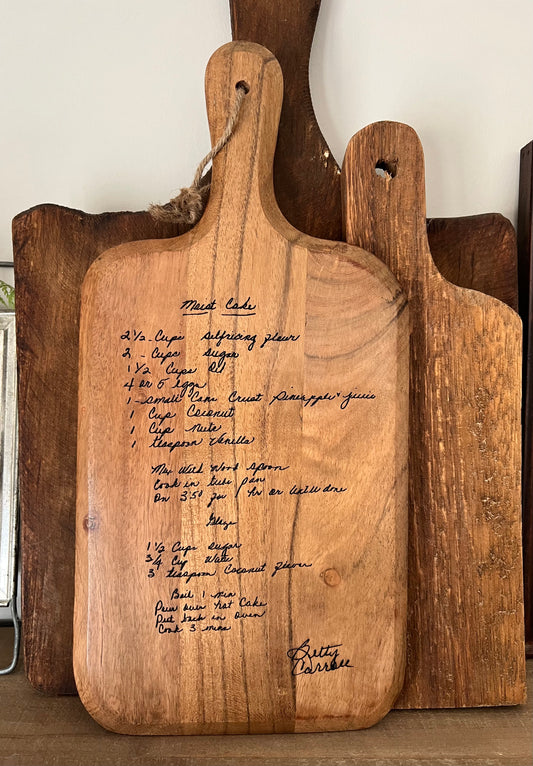 Moist Cake
2 1/2 - Cups selfrising flour
2 - Cups sugar
1 1/2 Cups Oil
4 or 5 eggs
1 - small Can Crust Pineapple & juice
1 Cup Coconut
1 Cup nuts
1 teaspoon Vanilla
Mix With Wood spoon
Cook in tube pan
On 350 for 1 hr or until done
Glaze
1 1/2 Cups sugar
3/4 Cup Water
3 teaspoon Coconut flavor
Boil 1 min
Pour over hot Cake
Put back in oven
Cook 3 mins
Betty
Carroll